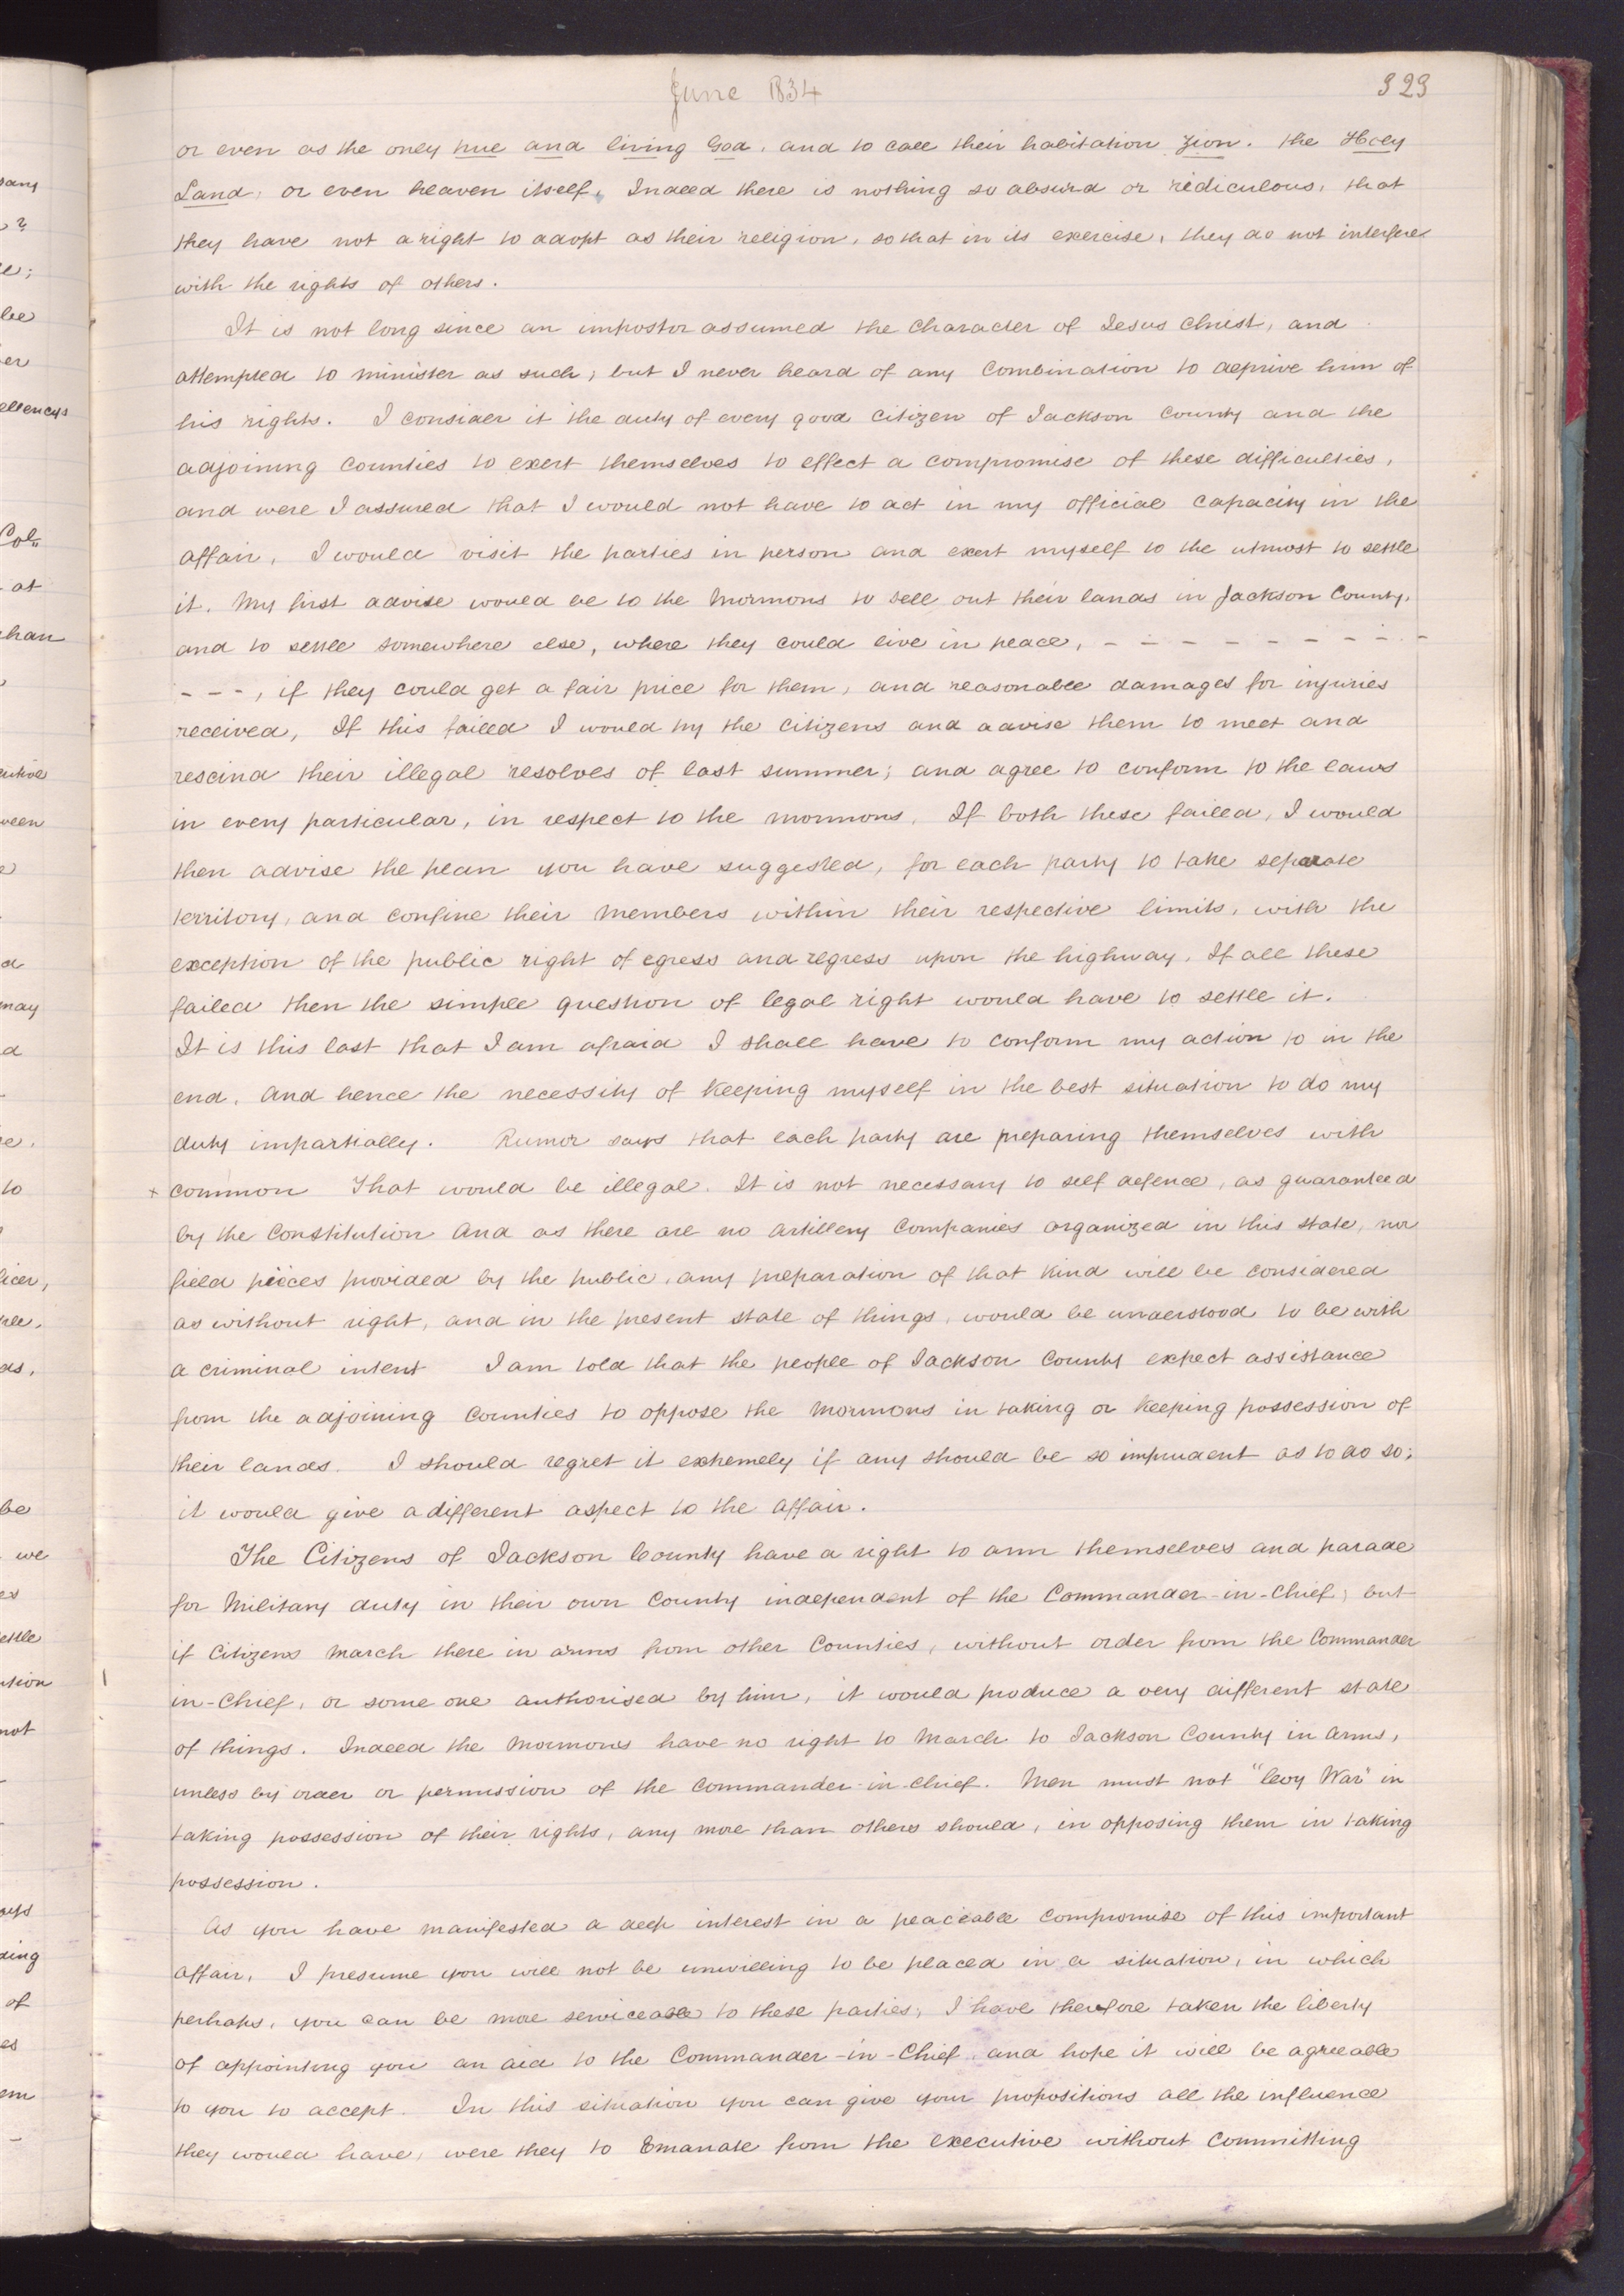 June 1834
323
or even as the only true and living God, and to call their habitation Zion. the Holy
Land, or even heaven itself, Indeed there is nothing so absurd or rediculous, that
they have not a right to adopt as their religion, so that in its exercise, they do not interfere
with the rights of others.
It is not long since an impostor assumed the Character of Jesus Christ, and
attempted to minister as such; but I never heard of any Combination to deprive him of
his rights. I consider it the duty of every good Citizen of Jackson County and the
adjoining Counties to exert themselves to effect a compromise of these difficulties,
and were I assured that I would not have to act in my official Capacity in the
affair, I would visit the parties in person and exert myself to the utmost to settle
it. My first advise would be to the Mormons to sell out their lands in Jackson County,
and to settle somewhere else, where they could live in peace, - - - - - - - - - -
- - -, if they could get a fair price for them, and reasonable damages for injuries
received, If this failed I would try the Citizens and advise them to meet and
rescind their illegal resolves of last summer; and agree to conform to the laws
in every particular, in respect to the mormons. If both these failed, I would
then advise the plan you have suggested, for each party to take separate
territory, and confine their members within their respective limits, with the
exception of the public right of egress and regress upon the highway. If all these
failed then the simple question of legal right would have to settle it.
It is this last that I am afraid I shall have to conform my action to in the
end, And hence the necessity of Keeping myself in the best situation to do my
duty impartially. Rumor says that each party are preparing themselves with
+ common That would be illegal. It is not necessary to self defence, as guaranteed
by the Constitution And as there are no Artillery Companies organized in this state, nor
field pieces provided by the public, any preparation of that kind will be considered
as without right, and in the present state of things, would be understood to be with
a criminal intent I am told that the people of Jackson County expect assistance
from the adjoining Counties to oppose the Mormons in taking or Keeping possession of
their lands. I should regret it extremely if any should be so imprudent as to do so;
it would give a different aspect to the affair.
The Citizens of Jackson County have a right to arm themselves and parade
for Military duty in their own County independent of the Commander-in-Chief; but
if Citizens March there in arms from other Counties, without order from the Commander
in-Chief, or some one authorised by him, it would produce a very different state
of things. Indeed the Mormons have no right to March to Jackson County in Arms,
unless by order or permission of the Commander-in-Chief. Men must not "levy War" in
taking possession of their rights, any more than others should, in opposing them in taking
possession.
As you have manifested a deep interest in a peaceable Compromise of this important
affair, I presume you will not be unwilling to be placed in a situation, in which
perhaps, you can be more serviceable to these parties, I have therefore taken the liberty
of appointing you an aid to the Commander-in-Chief, and hope it will be agreeable
to you to accept. In this situation you can give your propositions all the influence
they would have, were they to Emanate from the executive without Committing